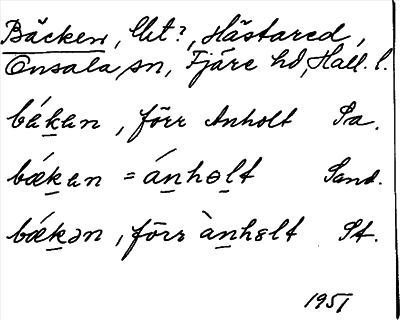 Bäcken, Ut?, Hästared,
Onsala sn, Fjäre hd, Hall. l.
bǽk̲en, förr Anholt Sa.
bǽk̲en = án̲hɵl̲t Sand.
bǽk̲ən, förr àn̲hɵlt St.
1951